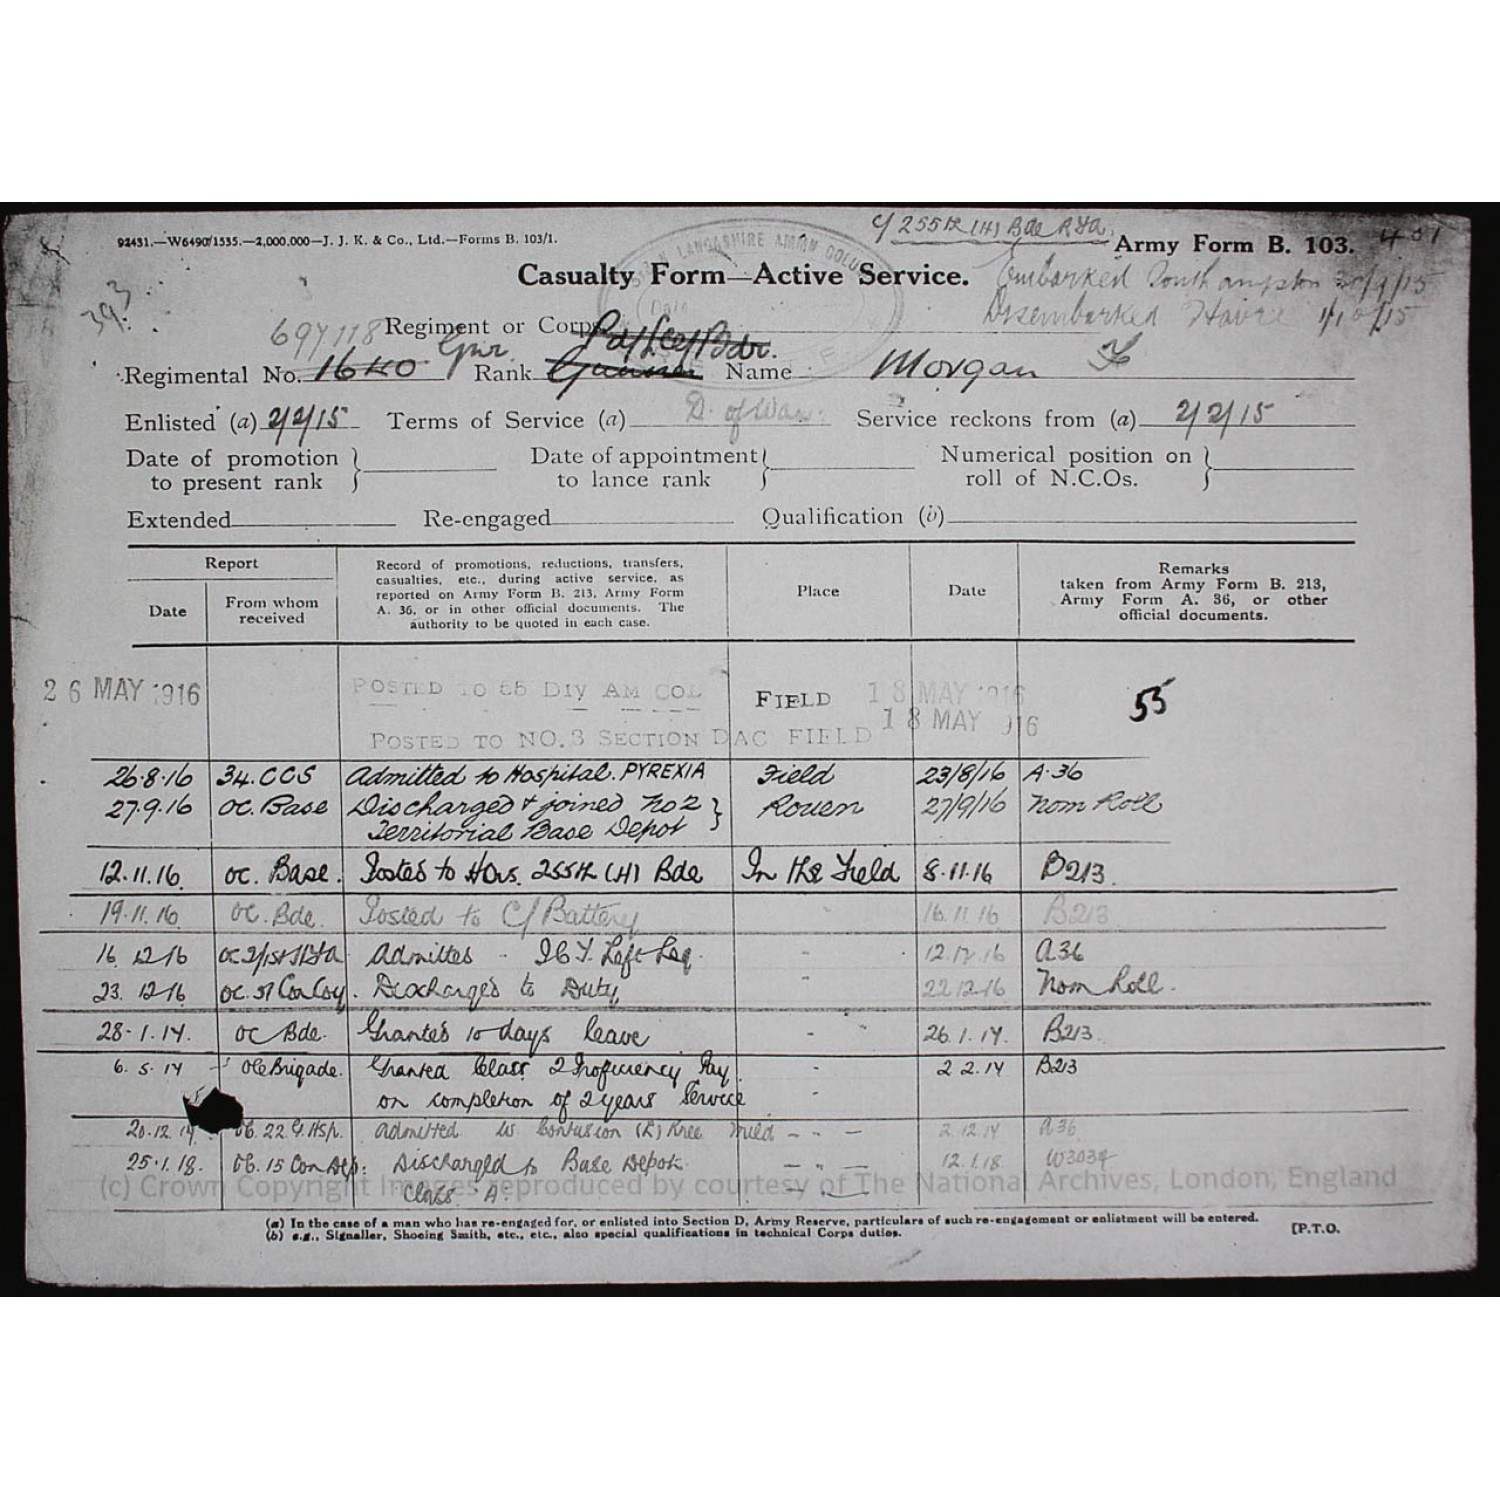 C/255th (H) Bde RFA
92431.—W6490/1535.—2,000,000—J. J. K. & Co., Ltd.—Forms B. 103/1.
Army Form B. 103.
LANCASHIRE AMMN COLU
Casualty Form—Active Service.
Embarked Southampton 30/9/15
Disembarked Havre 1/10/15
393
697118 Regiment or Corps
Gnr. Bdr.
Regimental No. 1640 Rank Gunner Name Morgan F
Enlisted (a) 2/2/15 Terms of Service (a) D. of War. Service reckons from (a) 2/2/15
Date of promotion to present rank } Date of appointment to lance rank } Numerical position on roll of N.C.Os. }
Extended Re-engaged Qualification (b)
Report
Date
From whom received
Record of promotions, reductions, transfers,
casualties, etc., during active service, as
reported on Army Form B. 213, Army Form
A. 36, or in other official documents. The
authority to be quoted in each case.
Place
Date
Remarks
taken from Army Form B. 213,
Army Form A. 36, or other
official documents.
26 MAY 1916 POSTED TO 55 DIV AM COL FIELD 18 MAY 1916 55
POSTED TO NO. 3 SECTION DAC FIELD 18 MAY 916
26.8.16 34. CCS Admitted to Hospital. PYREXIA Field 23/8/16 A.36
27.9.16 OC. Base Discharged & joined No 2 } Rouen 27/9/16 Nom Roll
Territorial Base Depot
12.11.16 OC. Base. Posted to HQrs. 255th (H) Bde In the Field 8.11.16 B213
19.11.16 OC. Bde. Posted to C/Battery " 16.11.16 B213
16.12.16 Admitted - I.C.T. Left Leg. " 12.12.16 A36
23.12.16 Discharged to Duty " 22.12.16 Nom Roll.
28.1.17. OC Bde. Granted 10 days leave - " 26.1.17. B213.
6.5.17 OC Brigade. Granted Class 2 Proficiency Pay - 2.2.17 B213
on completion of 2 years Service -
20.12.17 OC. 22 G. Hsp. Admitted Contusion (L) Knee Mild - " - 2.12.17 A36
25.1.18. OC. 15 Con Dep: Discharged to Base Depot. - " - 12.1.18. W3034
Class A. - " -
(c) Crown Copyright Images reproduced by courtesy of The National Archives, London, England
(a) In the case of a man who has re-engaged for, or enlisted into Section D, Army Reserve, particulars of such re-engagement or enlistment will be entered.
(b) e.g., Signaller, Shoeing Smith, etc., etc., also special qualifications in technical Corps duties.
[P.T.O.